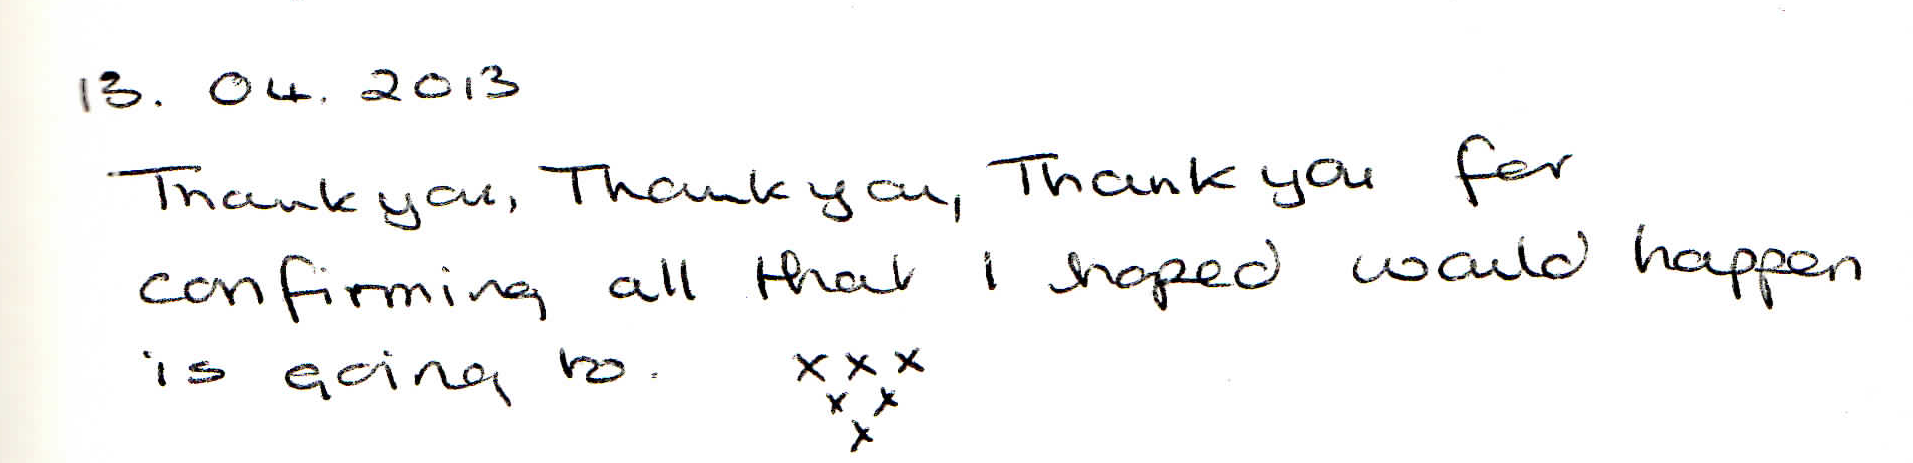 13. 04. 2013
Thank you, Thank you, Thank you for
confirming all that I hoped would happen
is going to. x x x
x x
x